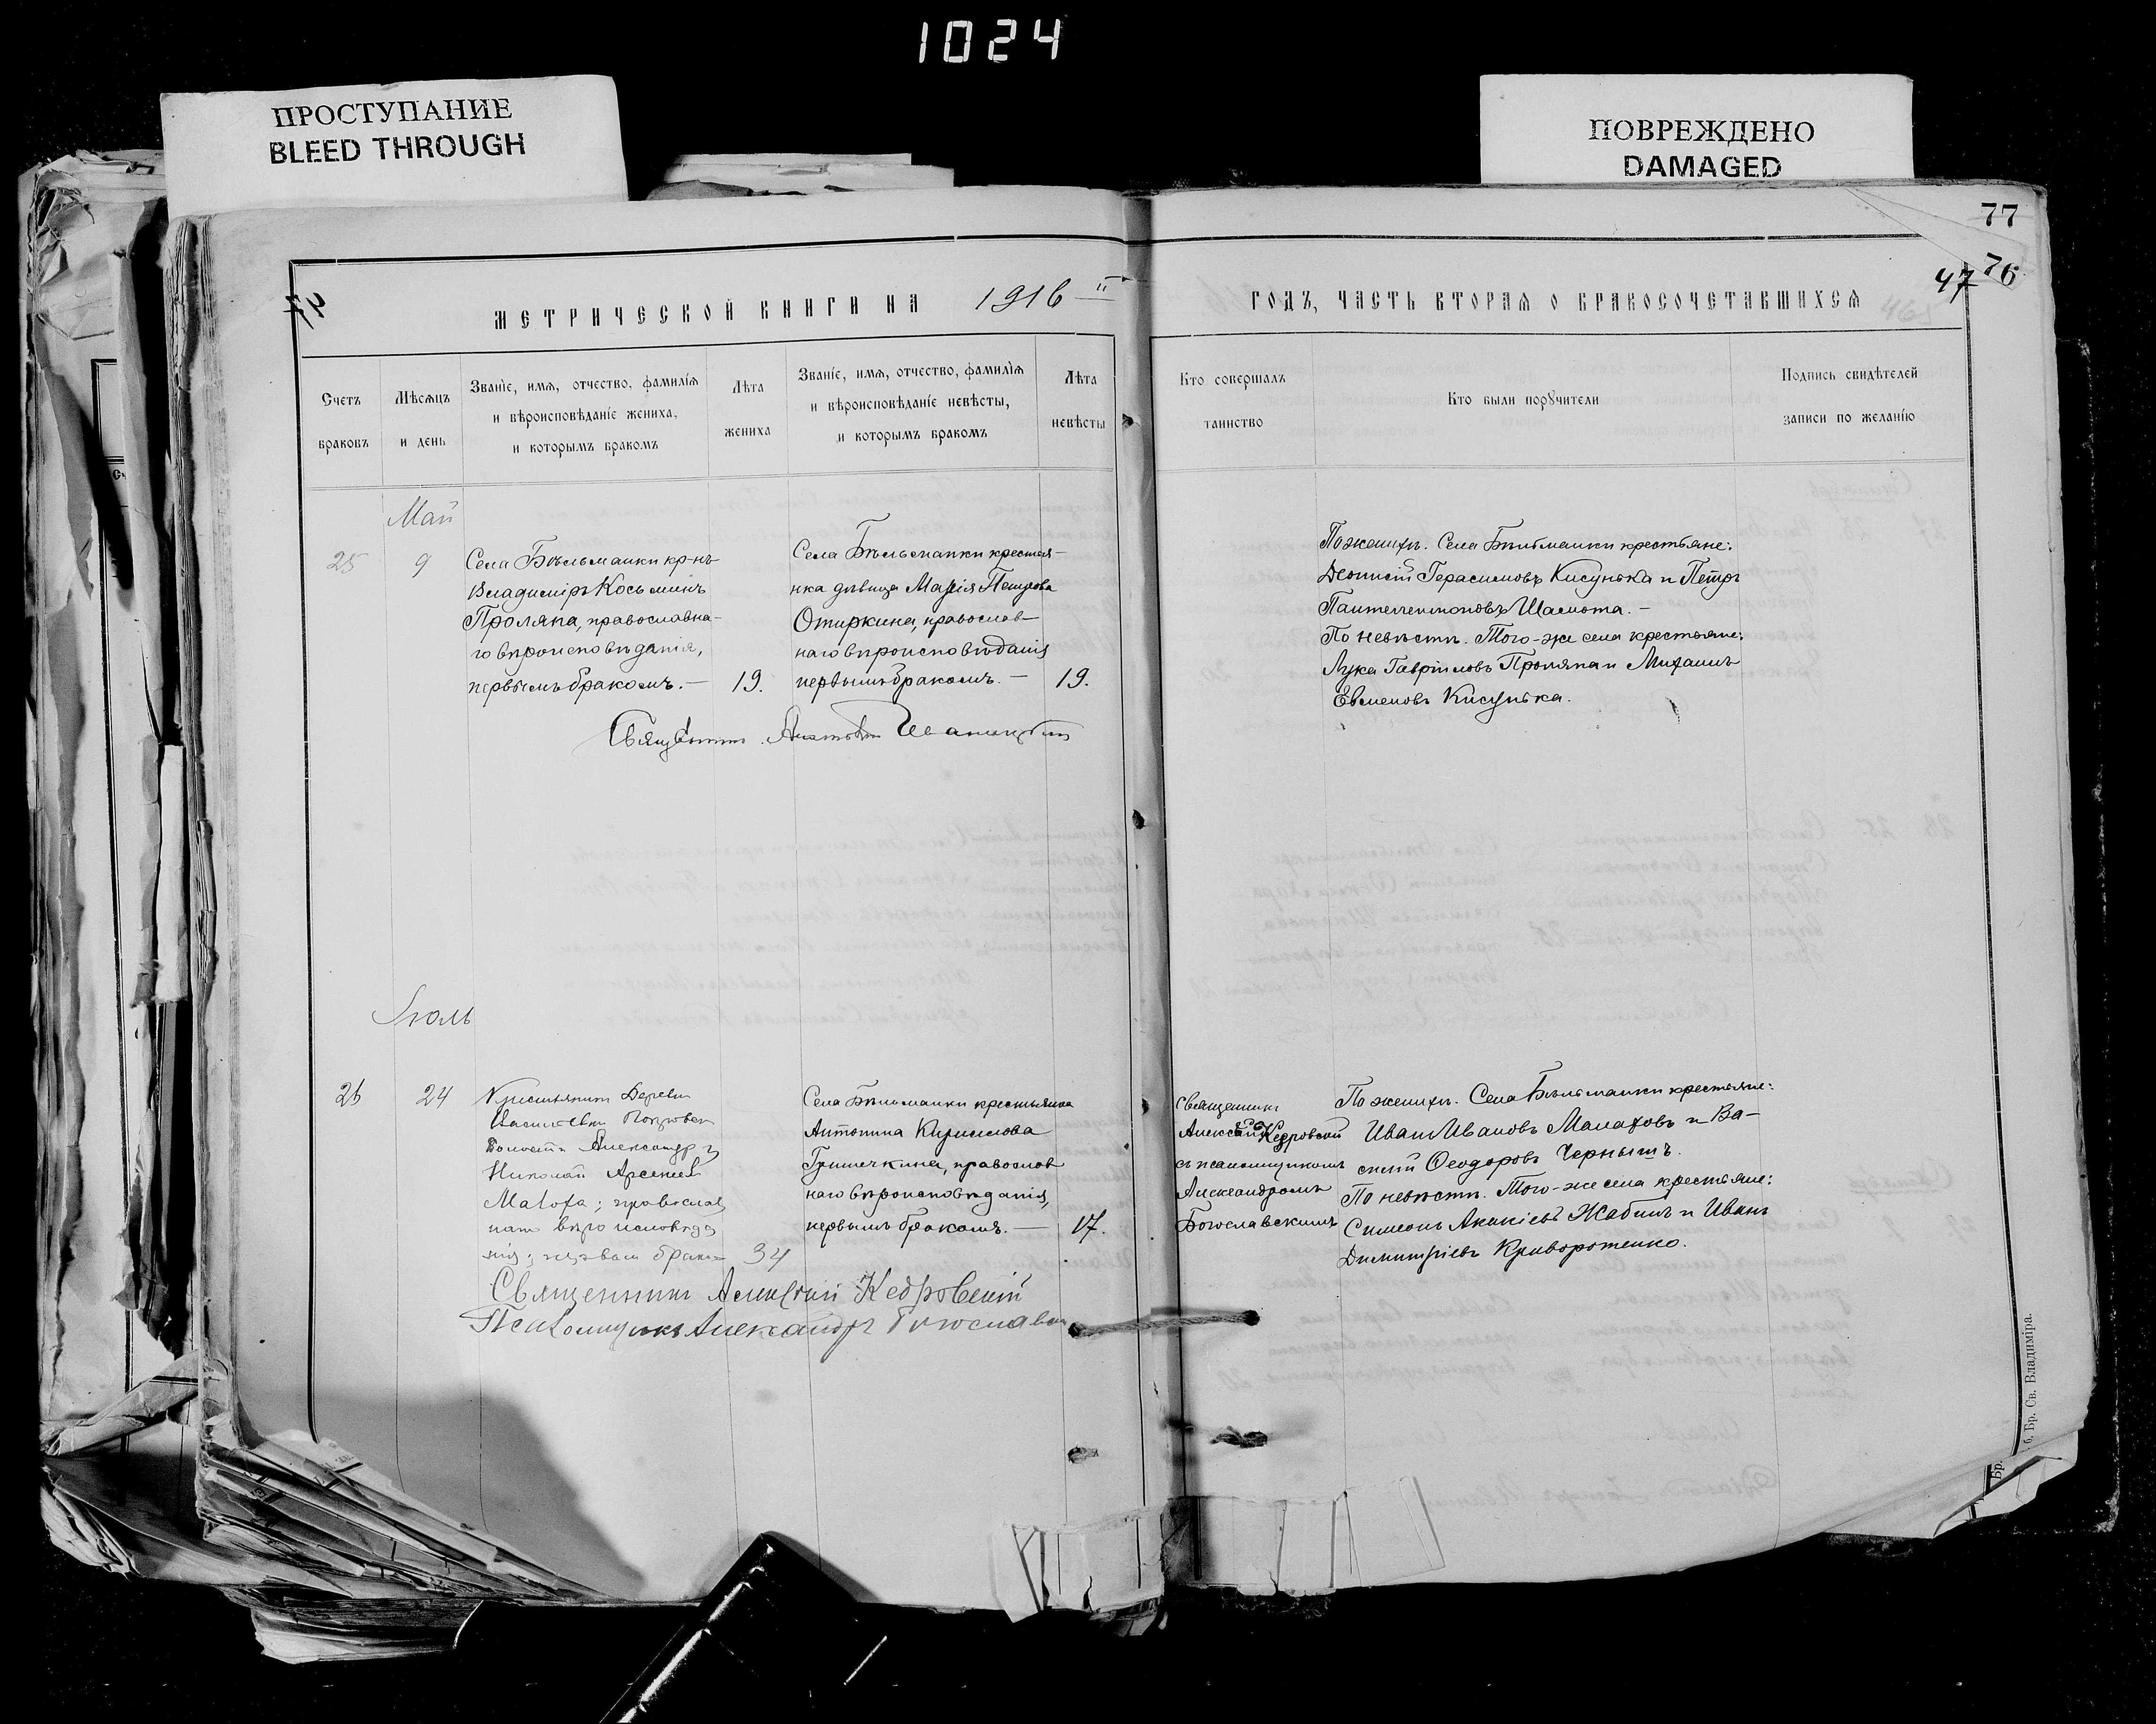 1024
ПРОСТУПАНИЕ
BLEED THROUGH
ПОВРЕЖДЕНО
DAMAGED
77
76
47
47
МЕТРИЧЕСКОЙ КНИГИ НА 1916 й
ГОДЪ, ЧАСТЬ ВТОРАЯ О БРАКОСОЧЕТАВШИХСЯ
465
Счетъ
браковъ
Мѣсяцъ
и день
Званіе, имя, отчество, фамилія
и вѣроисповѣданіе жениха,
и которымъ бракомъ
Лѣта
жениха
Званіе, имя, отчество, фамилія
и вѣроисповѣданіе невѣсты,
и которымъ бракомъ
Лѣта
невѣсты
Кто совершалъ
таинство
Кто были поручители
Подпись свидѣтелей
записи по желанію
Май
25
9
Села Бѣльманки кр-нъ
Владиміръ Косьминъ
Проляпа, православна-
го вѣроисповѣданія,
первымъ бракомъ. —
19.
Села Бѣльманки крестья-
нка дѣвица Марія Петрова
Отиркина, православ-
наго вѣроисповѣданія
первымъ бракомъ. —
19.
По женихѣ. Села Бѣльманки крестьяне:
Діонисій Герасимовъ Кисунька и Петръ
Пантелеимоновъ Шамота. —
По невѣстѣ. Того-же села крестьяне:
Лука Гавріиловъ Проляпа и Михаилъ
Евменовъ Кисунька.
Священникъ
Іюль
26
24
Крестьянинъ Деревни
Александр
Николай Арсеніев
Малоха; православ
наго вѣроисповѣда
нія; первым браком
34
Села Бѣльманки крестьянка
Антонина Кириллова
Гришечкина, православ
наго вѣроисповѣданія,
первымъ бракомъ. —
17.
Священникъ
Алексій Кедровскій
съ псаломщикомъ
Александромъ
Богославскимъ
По женихѣ. Села Бѣльманки крестьяне:
Иванъ Ивановъ Малаховъ и Ва-
силій Ѳеодоровъ Чернышъ.
По невѣстѣ. Того-же села крестьяне:
Симеонъ Акакіевъ Жабинъ и Иванъ
Димитріевъ Криворотенко.
Священникъ Алексій Кедровскій
Псаломщикъ Александръ Богославск
б. Бр. Св. Владиміра.